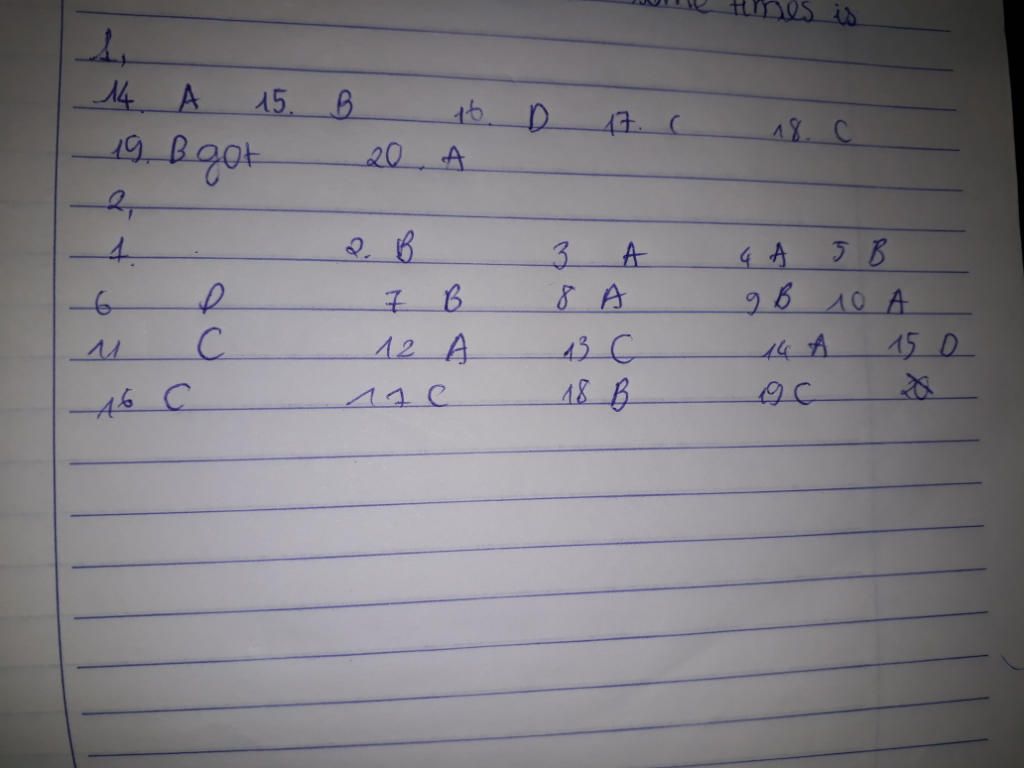 some times is
1,
14. A 15. B 16. D 17. C 18. C
19. B got 20. A
2,
1. 2. B 3 A 4 A 5 B
6 D 7 B 8 A 9 B 10 A
11 C 12 A 13 C 14 A 15 D
16 C 17 C 18 B 19 C 20